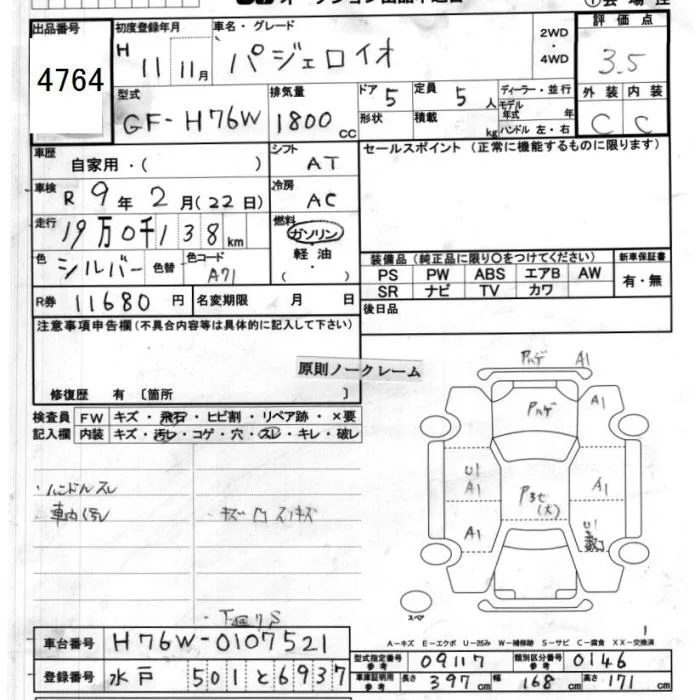 出品番号 初度登録年月 車名・グレード 評価点
4764 H 11 11月 パジェロイオ 2WD・4WD 3.5
型式 排気量 ドア 5 定員 5 人 ディーラー・並行 外装 内装
GF-H76W 1800 CC 形状 積載 kg モデル年式 年 ハンドル 左・右 C C
車歴 自家用・( ) シフト AT セールスポイント (正常に機能するものに限ります)
車検 R 9年 2月(22日) 冷房 AC
走行 19万0千138km 燃料 ガソリン
色 シルバー 色替 色コード A71 軽油 ・( ) 装備品(純正品に限り○をつけてください) 新車保証書
PS PW ABS エアB AW 有・無
SR ナビ TV カワ
R券 11680円 名変期限 月 日 後日品
注意事項申告欄(不具合内容等は具体的に記入して下さい)
原則ノークレーム
修復歴 有 〔箇所 〕
検査員 FW キズ・飛石・ヒビ割・リペア跡・×要
記入欄 内装 キズ・汚レ・コゲ・穴・スレ・キレ・破レ
ハンドルスレ
キズ凹スリキズ
A1
A1
U1
A1 A1
A1 U1
(大)
スペア
A-キズ E-エクボ U-凹み W-補修跡 S-サビ C-腐食 XX-交換済
車台番号 H76W-0107521
登録番号 水戸 501 と 6937
型式指定番号 参考 09117 類別区分番号 参考 0146
車庫証明用 参考 長さ 397cm 幅 168cm 高さ 171cm